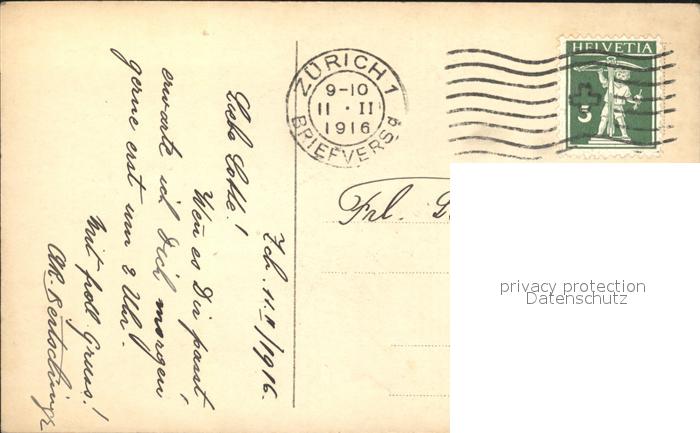 Zch. 11. II/1916.
Liebe Lotte!
Wen̄ es Dir passt,
erwarte ich Dich morgen
gerne erst um 2 Uhr.
Mit frdl. Gruss!
ZÜRICH 1
9-10
11 · II
1916
BRIEFVERSd
HELVETIA
5
Frl.
privacy protection
Datenschutz